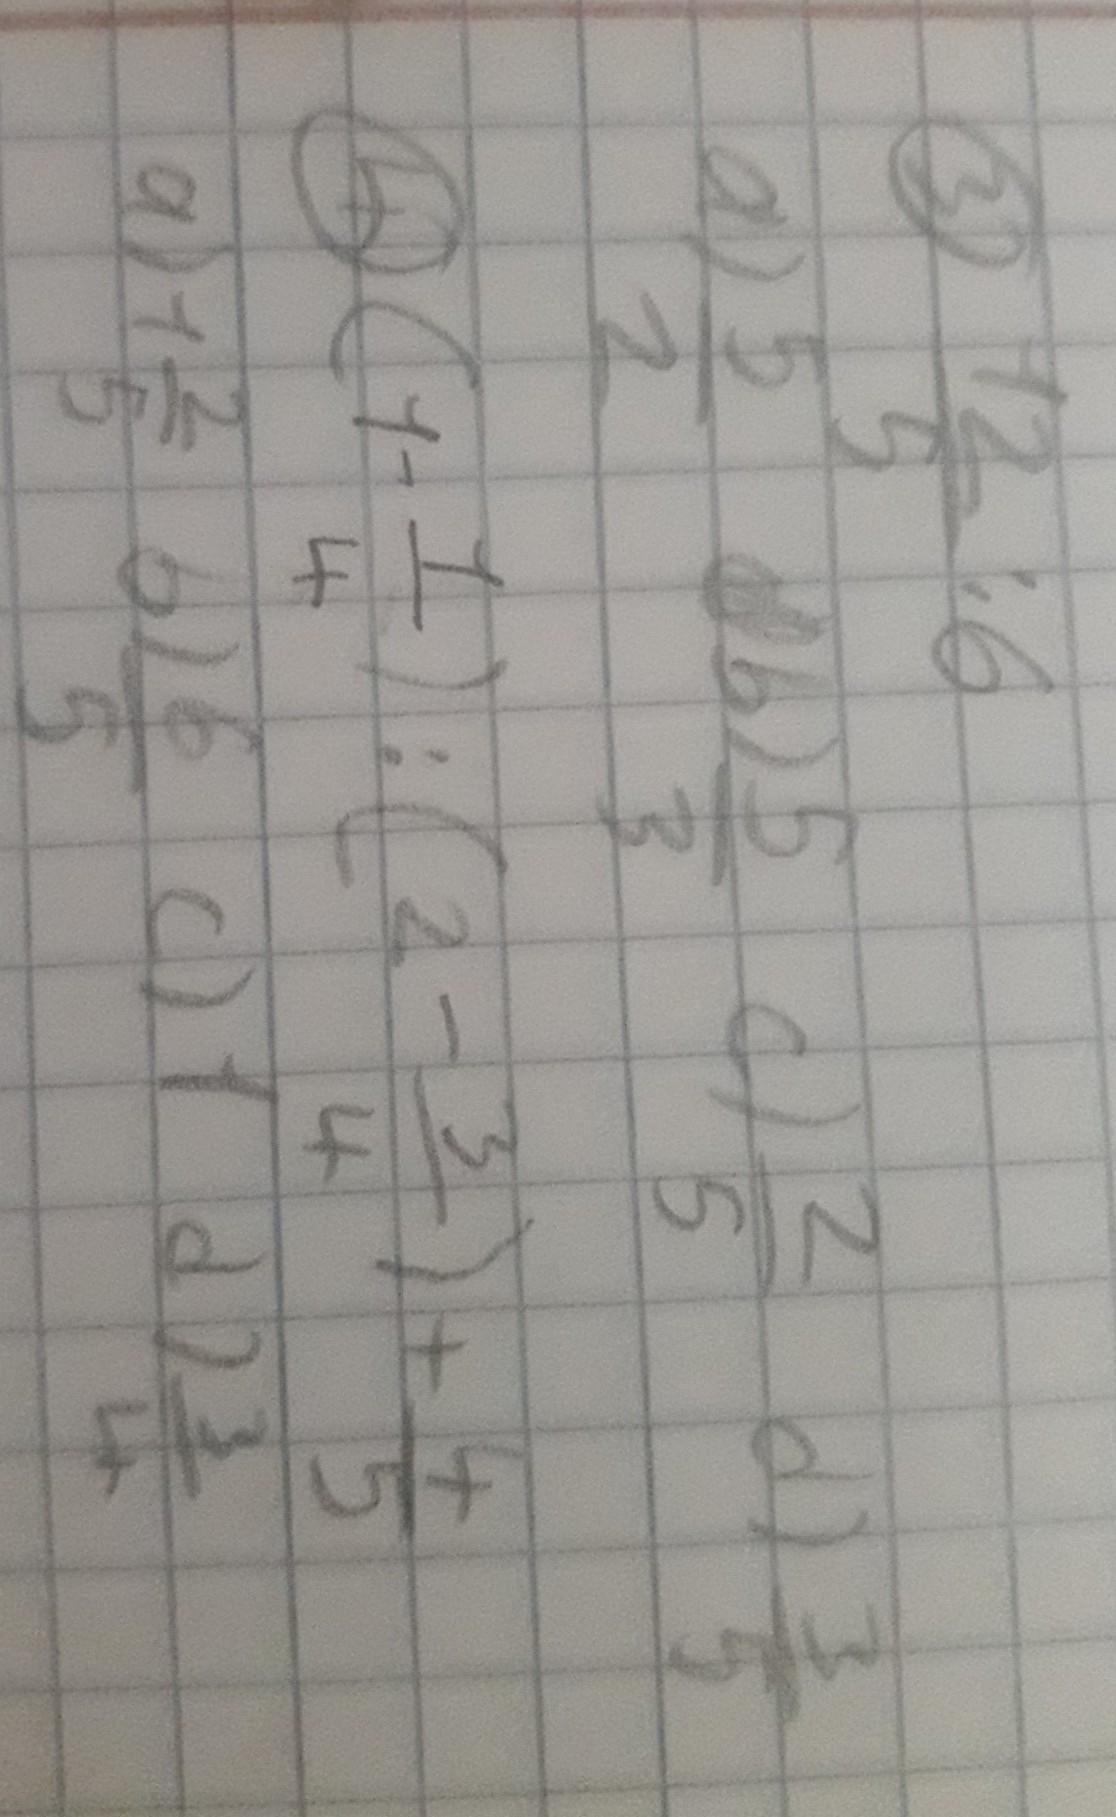 ③ 12/5 : 6
a) 5/2 b) 5/3 c) 2/5 d) 3/5
④ (1 - 1/4) : (2 - 3/4) + 4/5
a) 1 2/5 b) 6/5 c) 1 d) 3/4